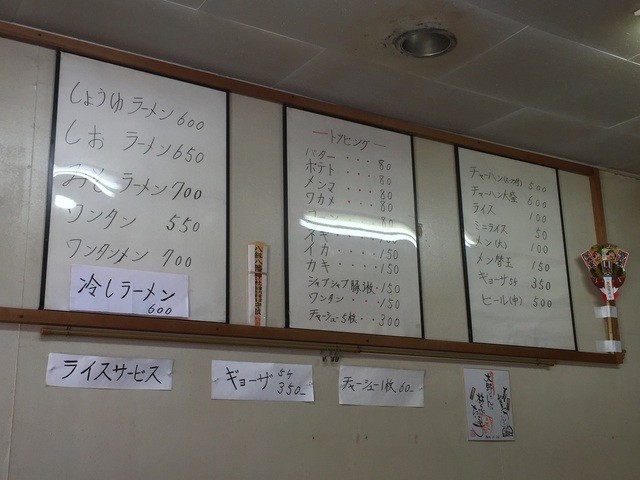 しょうゆラーメン 600
しお ラーメン 650
みそ ラーメン 700
ワンタン 550
ワンタンメン 700
冷しラーメン
600
ートッピングー
バター・・・80
ホテト・・・80
メンマ・・・80
ワカメ・・・80
80
イカ・・・150
カキ・・・150
シャブシャブ豚3枚・150
ワンタン・・150
チャーシュー5枚・・300
500
チャーハン大盛 600
ライス 100
ミニライス 50
メン(大) 100
メン替玉 150
ギョーザ5ケ 350
ビール(中) 500
ライスサービス
ギョーザ 5ケ 350-
チャーシュー1枚 60-